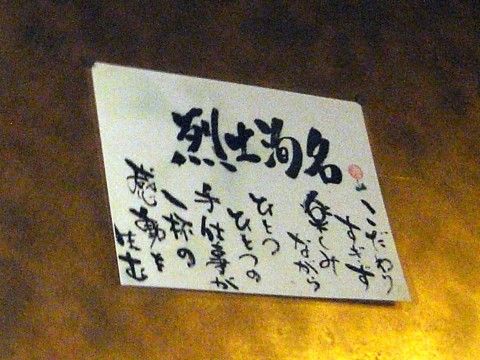 烈士洵名
こだわり
楽しみ
ながら
ひとつ
ひとつの
手仕事が
一杯の
感動を
生む